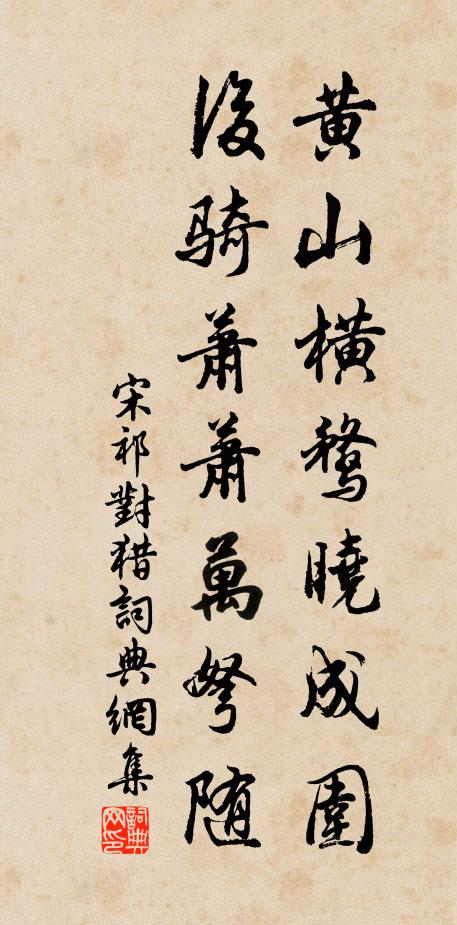 黄山橫鶩曉成圍
後騎蕭蕭萬弩随
宋祁對猎詞典網集
詞典网印